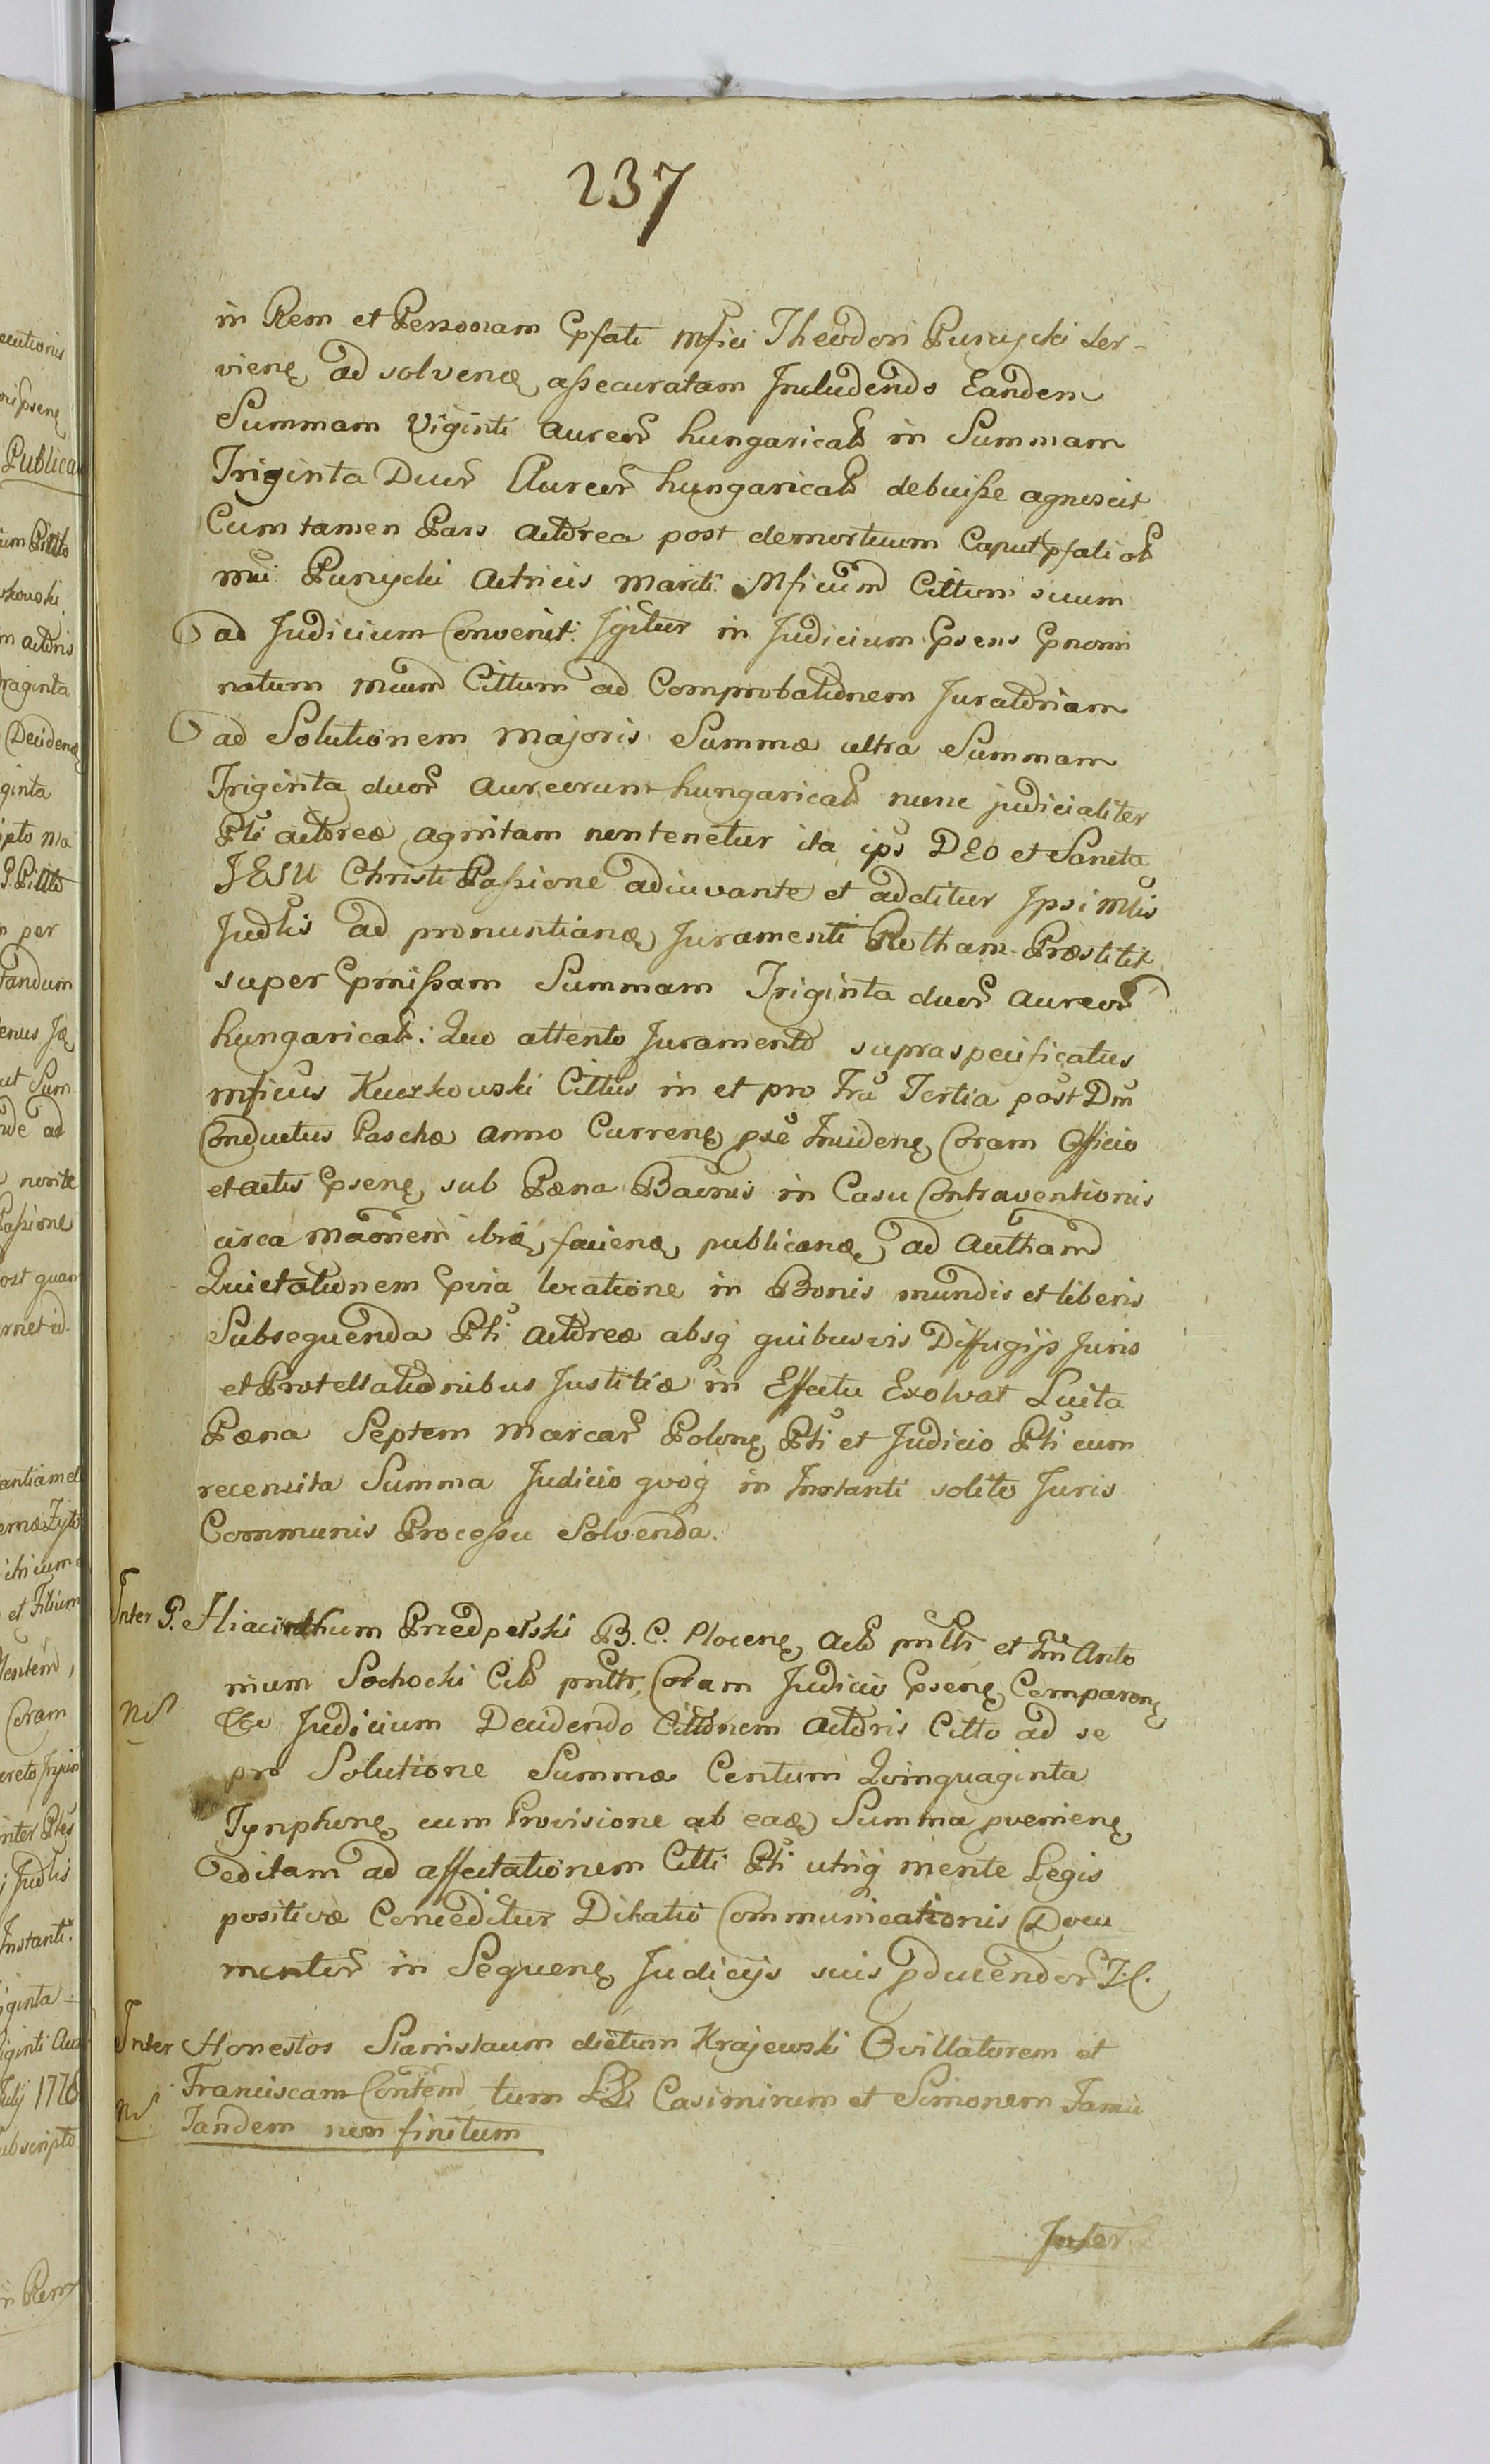 237
in Rem et Personam Pfati Mfici Theodori Purzycki ser-
viens ad solvend assecuratam Includendo Eandem
Summam Viginti aureor hungarical in Summam
Triginta Duor Aureor hungarical debuisse agnoscit
Cum tamen Pars actorea post demortuum Caput pfati
Purzycki actricis Mariti Mficum Cittum suum
ad Judicium Convenit: Igitur in Judicium Psens Pnomi
natum Mcum Cittum ad Comprobationem Juratoriam
ad Solutionem Majoris Summæ ultra Summam
Triginta duor Aureorum hungarical nunc judicialiter
Pti actoreæ agnitam non tenetur ita ips DEO et Sancta
JESU Christi Passione adiuvante et additur Ipsi Mlis
Judlis ad pronuntiand Juramenti Rotham Præstitit
super Pmissam Summam Triginta duor aureor
hungarical: Quo attento Juramento supraspecificatus
Mficus Kuczkowski Cittus in et pro Fra Tertia post Dm
Conductus Paschæ anno Currens pse Incidens Coram Officio
et actis Psens sub Pæna Bannis in Casu Contraventionis
circa ibid faciend publicand ad Autham
Quietationem Pvia locatione in Bonis mundis et liberis
Subsequenda Pti actoreæ absq quibusvis Diffugijs Juris
et Protellationibus Justitiæ in Effectu Exolvat Luita
Pæna Septem Marcar Polons Pti et Judicio Pti cum
recensita Summa Judicio quoq in Instanti solito Juris
Communis Processu Solvenda.
Inter P. Hiacinthum Przedpelski B. C. Plocens Act pnltr et Anto
nium Sochocki Cit pnltr, Coram Judicio Psens Comparens
Judicium Decidendo Cittonem Actoris Citto ad se
pro Solutione Summæ Centum Quinquaginta
Tynphons cum Provisione ab ead Summa pveniens
editam ad affectationem Citti Pti utriq mente Legis
positivæ Conceditur Dilatio Communicationis Docu
mentor in Sequens Judicijs suis pducendor
Inter Honestos Stanislaum dictum Krajewski Ovillatorem et
Franciscam Contem tum Casimirum et Simonem Famu
Tandem non finitum
Inter